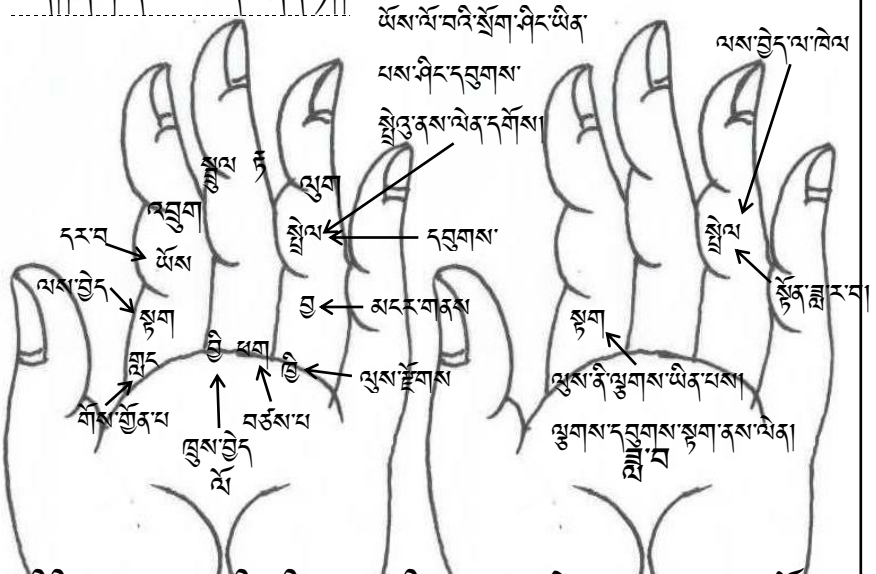 ཡོས་ལོ་བའི་སྲོག་ཤིང་ཡིན་
པས་ཤིང་དབུགས་
སྤྲེའུ་ནས་ལེན་དགོས།
ལས་བྱེད་ལ་ཁེལ
སྦྲུལ རྟ
ལུག
འབྲུག
སྤྲེལ
དབུགས་
དར་བ
ཡོས
ལས་བྱེད
སྟག
བྱ
མངར་གནས
གླང
བྱི
ཕག
ཁྱི
ལུས་རྫོགས
གོས་གྱོན་པ
བཙས་པ
ཁྲུས་བྱེད
ལོ
སྤྲེལ
སྟོན་ཟླ་ར་བ།
སྟག
ལུས་ནི་ལྕགས་ཡིན་པས།
ལྕགས་དབུགས་སྟག་ནས་ལེན།
ཟླ་བ